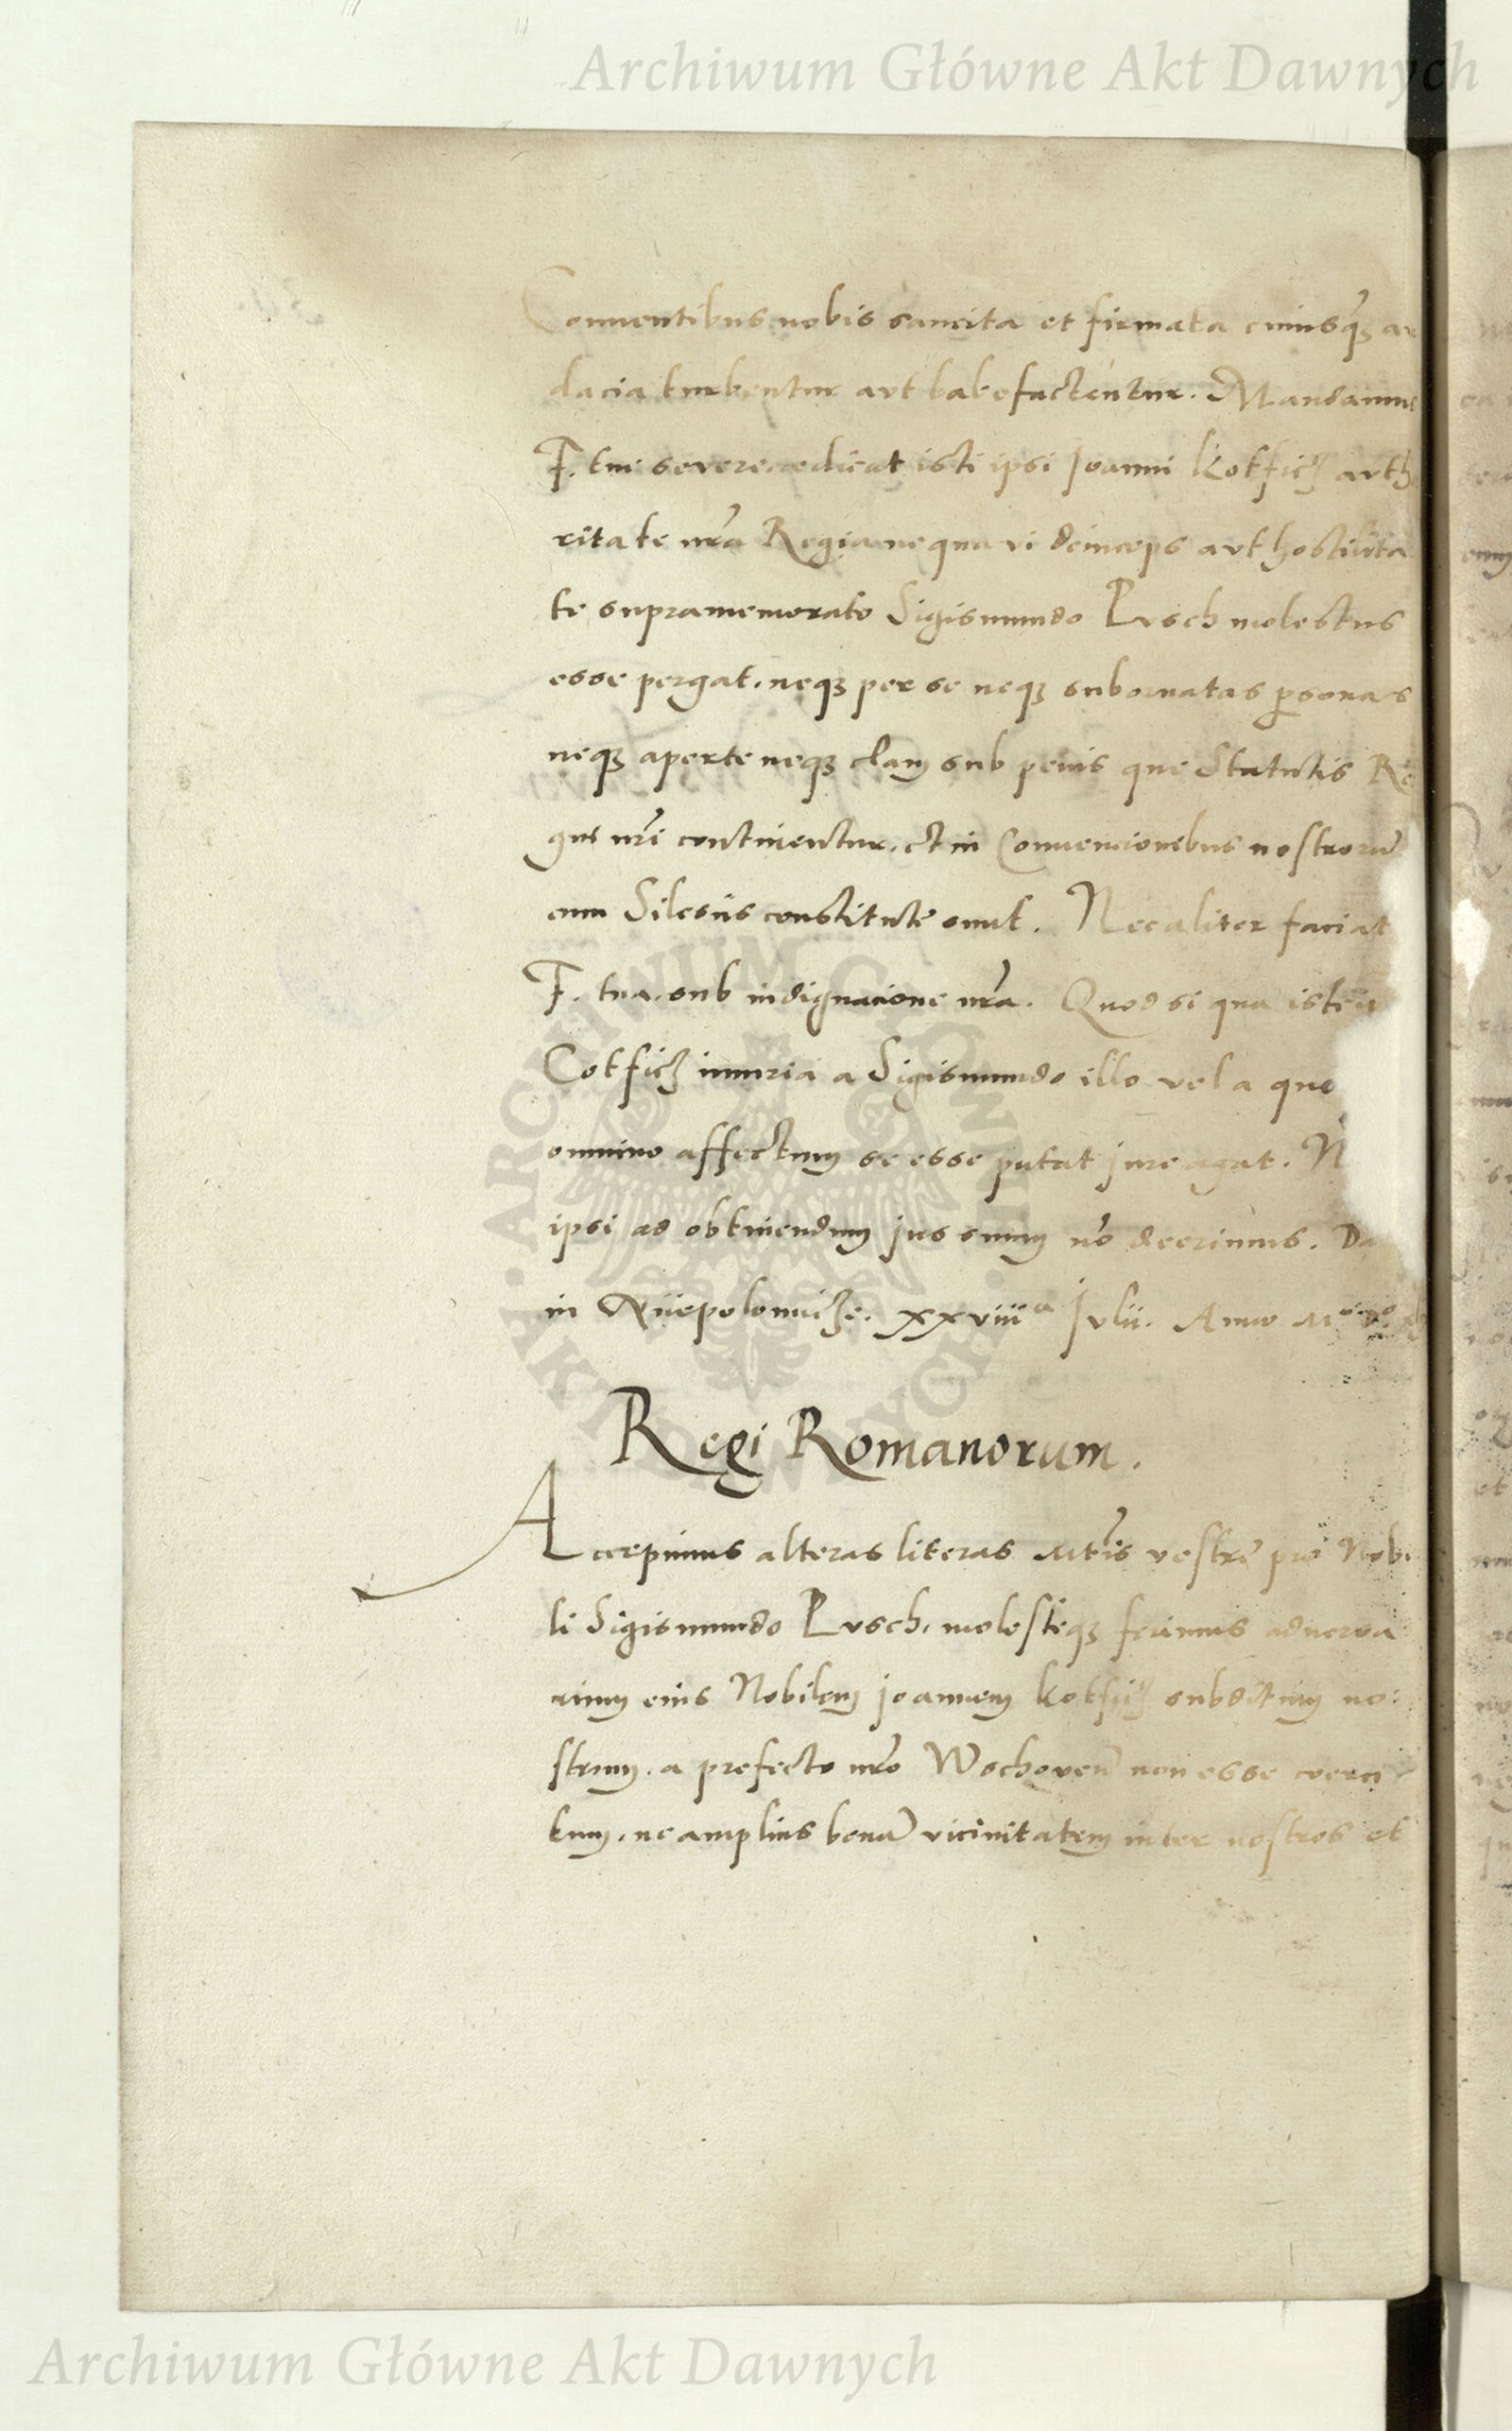 Archiwum Główne Akt Dawnych
Conuentibus nobis sancita et firmata cuiusqȝ au
dacia turbentur aut labefactentur. Mandamus
F. tue severe edicat isti ipsi Joanni Kotficȝ autho
ritate nr̃a Regia ne qua vi deinceps aut hostilita
te supramemorato Sigismundo Pusch molestus
esse pergat. neqȝ per se neqȝ subornatas ꝑsonas
neqȝ aperte neqȝ clam sub penis que Statutis Re
gni nr̃i continentur. et in Conuencionibus nostrorũ
cum Silesiis constitute sunt. Nec aliter faciat
F. tua. sub indignacione nr̃a. Quod si qua iste
Cotficȝ iniuria a Sigismundo illo vel a quo
omnino affectum se esse putat jure agat. N
ipsi ad obtinendum jus suum nõ deerimus. Da
in Niepolomicȝe. xxviiiᵃ Julii. Anno Mᵒ
Regi Romanorum.
Accepimus alteras literas Mt̃is vestre pro Nobi
li Sigismundo Pusch. molesteqȝ ferimus adversa
rium eius Nobilem Joannem Kotficȝ subditum no:
strum. a prefecto nr̃o Wschoveñ non esse coerci
tum. ne amplius bonã vicinitatem inter nostros et
ARCHIWUM GŁÓWNE AKT DAWNYCH
Archiwum Główne Akt Dawnych